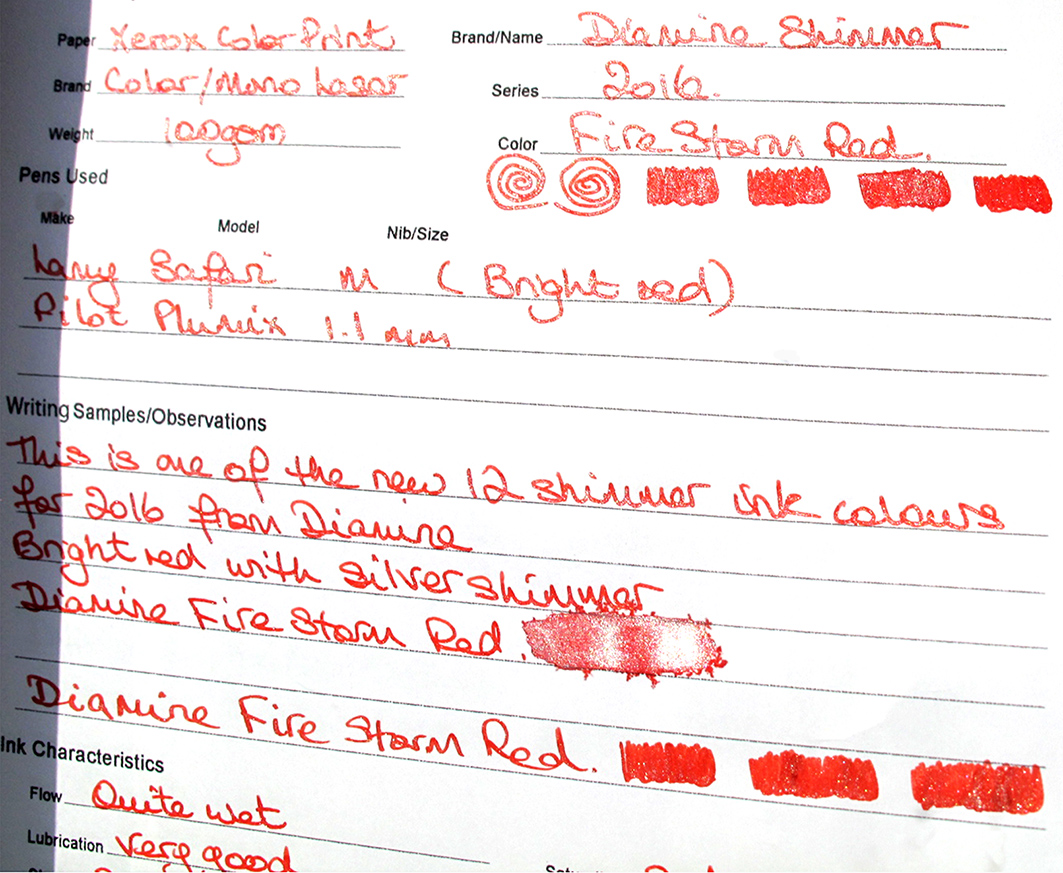 Paper Xerox Color Print
Brand/Name Diamine Shimmer
Brand Color/Mono Laser
Series 2016.
Weight 100gsm
Color Fire Storm Red.
Pens Used
Make Model Nib/Size
Lamy Safari M (Bright red)
Pilot Plumix 1.1 mm
Writing Samples/Observations
This is one of the new 12 shimmer ink colours
for 2016 from Diamine
Bright red with silver shimmer
Diamine Fire Storm Red.
Diamine Fire Storm Red.
Ink Characteristics
Flow Quite wet
Lubrication Very good